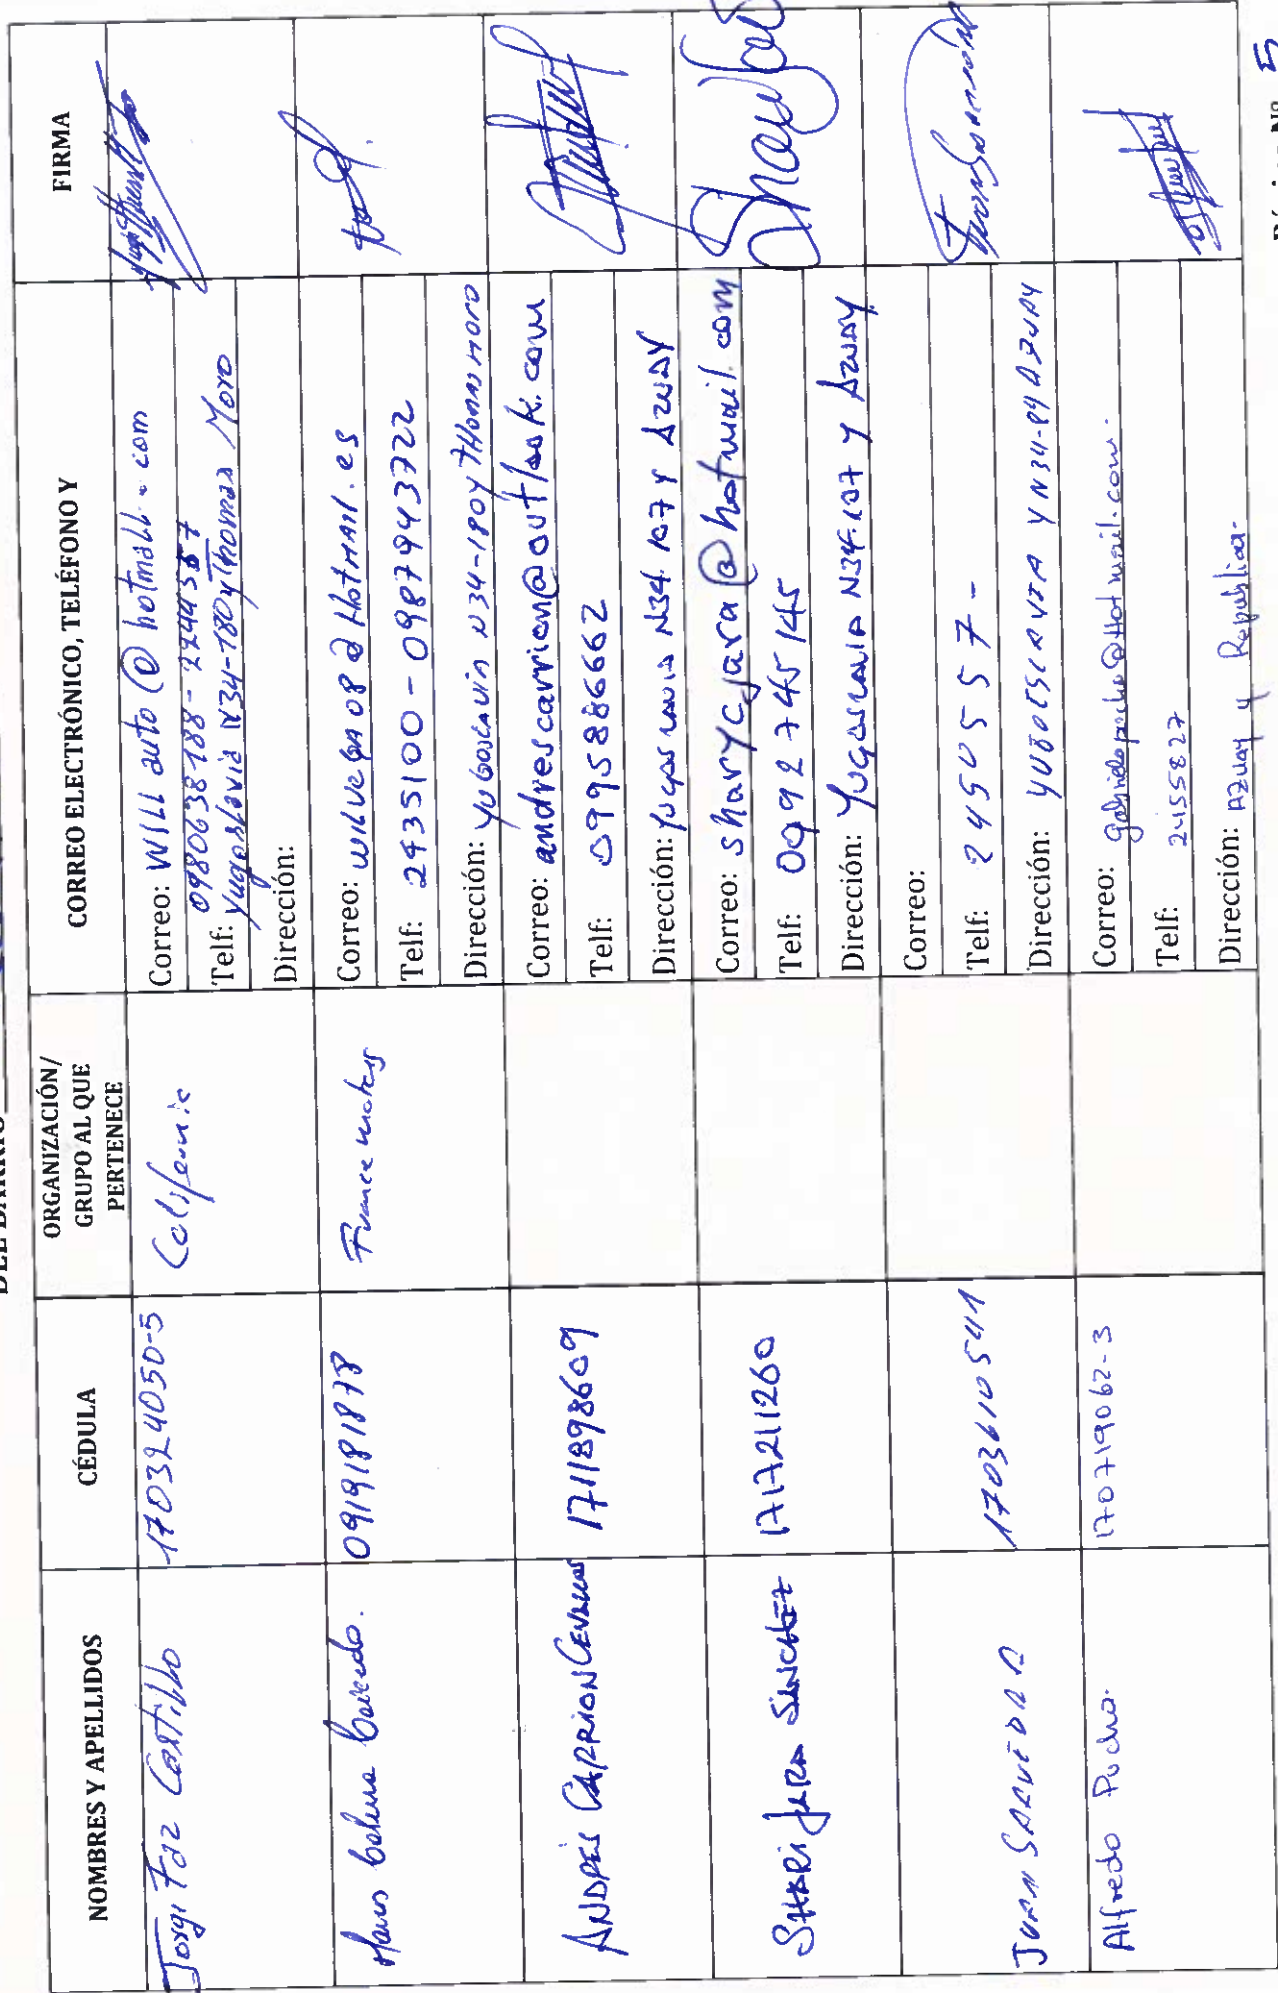 DEL BARRIO
NOMBRES Y APELLIDOS
CÉDULA
ORGANIZACIÓN/
GRUPO AL QUE
PERTENECE
CORREO ELECTRÓNICO, TELÉFONO Y
FIRMA
Jorge Faz Castillo
170324050-5
California
Correo: WILL auto @ hotmail.com
0980638188 - 2244557
Telf: Yugoslavia N34-180 y Thomas Moro
Dirección:
Caicedo.
091918187
Correo: wilvega08@Hotmail.es
Telf: 2435100 - 0987943722
Dirección: Yugoslavia N34-180 y Thomas Moro
ANDRÉS CARRION CEVALLOS
1711898609
Correo: andrescarrion@outlook.com
Telf: 0995886662
Dirección: Yugoslavia N34.107 y AZUAY
SHARI JARA SÁNCHEZ
1717211260
Correo: sharycjara@hotmail.com
Telf: 0992745145
Dirección: Yugoslavia N34-107 y AZUAY
JUAN SAAVEDRA
1703610541
Correo:
Telf: 2450557-
Dirección: YUGOESLAVIA Y N34-84 AZUAY
Alfredo Pucha.
170719062-3
Correo: @Hotmail.com.
Telf: 2455827
Dirección: Azuay y Republica.
Página Nº 5